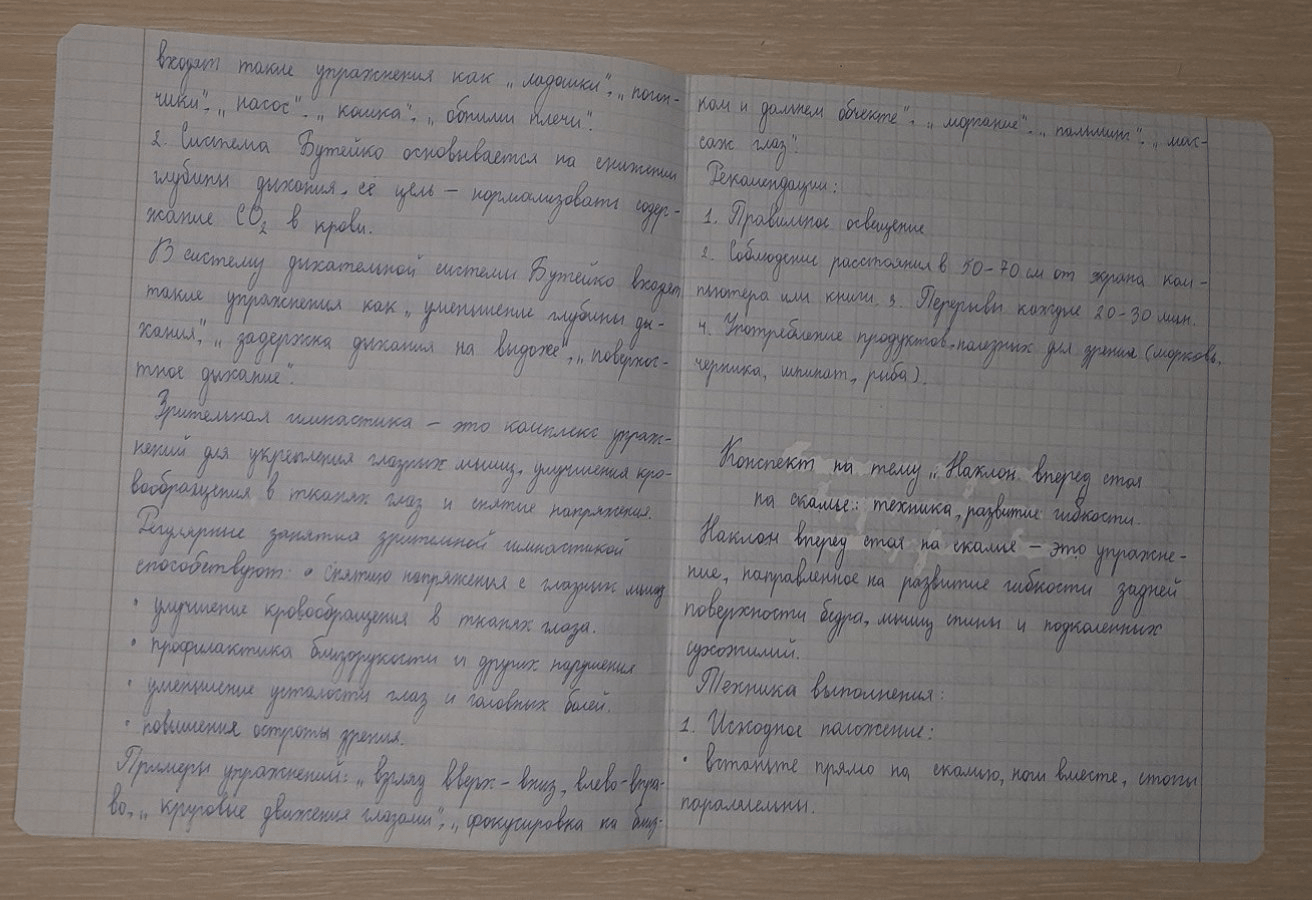 входят такие упражнения как „ладошки", „погон-
чики", „насос", „кошка", „обними плечи".
2. Система Бутейко основывается на снижении
глубины дыхания, её цель – нормализовать содер-
жание CO2 в крови.
В систему дыхательной системы Бутейко входят
такие упражнения как „уменьшение глубины ды-
хания", „задержка дыхания на выдохе", „поверхнос-
тное дыхание".
Зрительная гимнастика – это комплекс упраж-
нений для укрепления глазных мышц, улучшения кро-
вообращения в тканях глаз и снятие напряжения.
Регулярные занятия зрительной гимнастикой
способствуют: • снятию напряжения с глазных мышц
• улучшение кровообращения в тканях глаза.
• профилактика близорукости и других нарушения
• уменьшение усталости глаз и головных болей.
• повышения остроты зрения.
Примеры упражнений: „взгляд вверх – вниз, влево-впра-
во", „круговые движения глазами", „фокусировка на близ-
ком и дальнем объекте", „моргание", „пальминг", „мас-
саж глаз".
Рекомендации:
1. Правильное освещение
2. Соблюдение расстояния в 50-70 см от экрана ком-
пьютера или книги. 3. Перерывы каждые 20-30 мин.
4. Употребление продуктов, полезных для зрения (морковь,
черника, шпинат, рыба).
Конспект на тему „Наклон вперед стоя
на скамье: техника, развитие гибкости.
Наклон вперед стоя на скамье – это упражне-
ние, направленное на развитие гибкости задней
поверхности бедра, мышц спины и подколенных
сухожилий.
Техника выполнения:
1. Исходное положение:
• встаньте прямо на скамью, ноги вместе, стопы
параллельны.